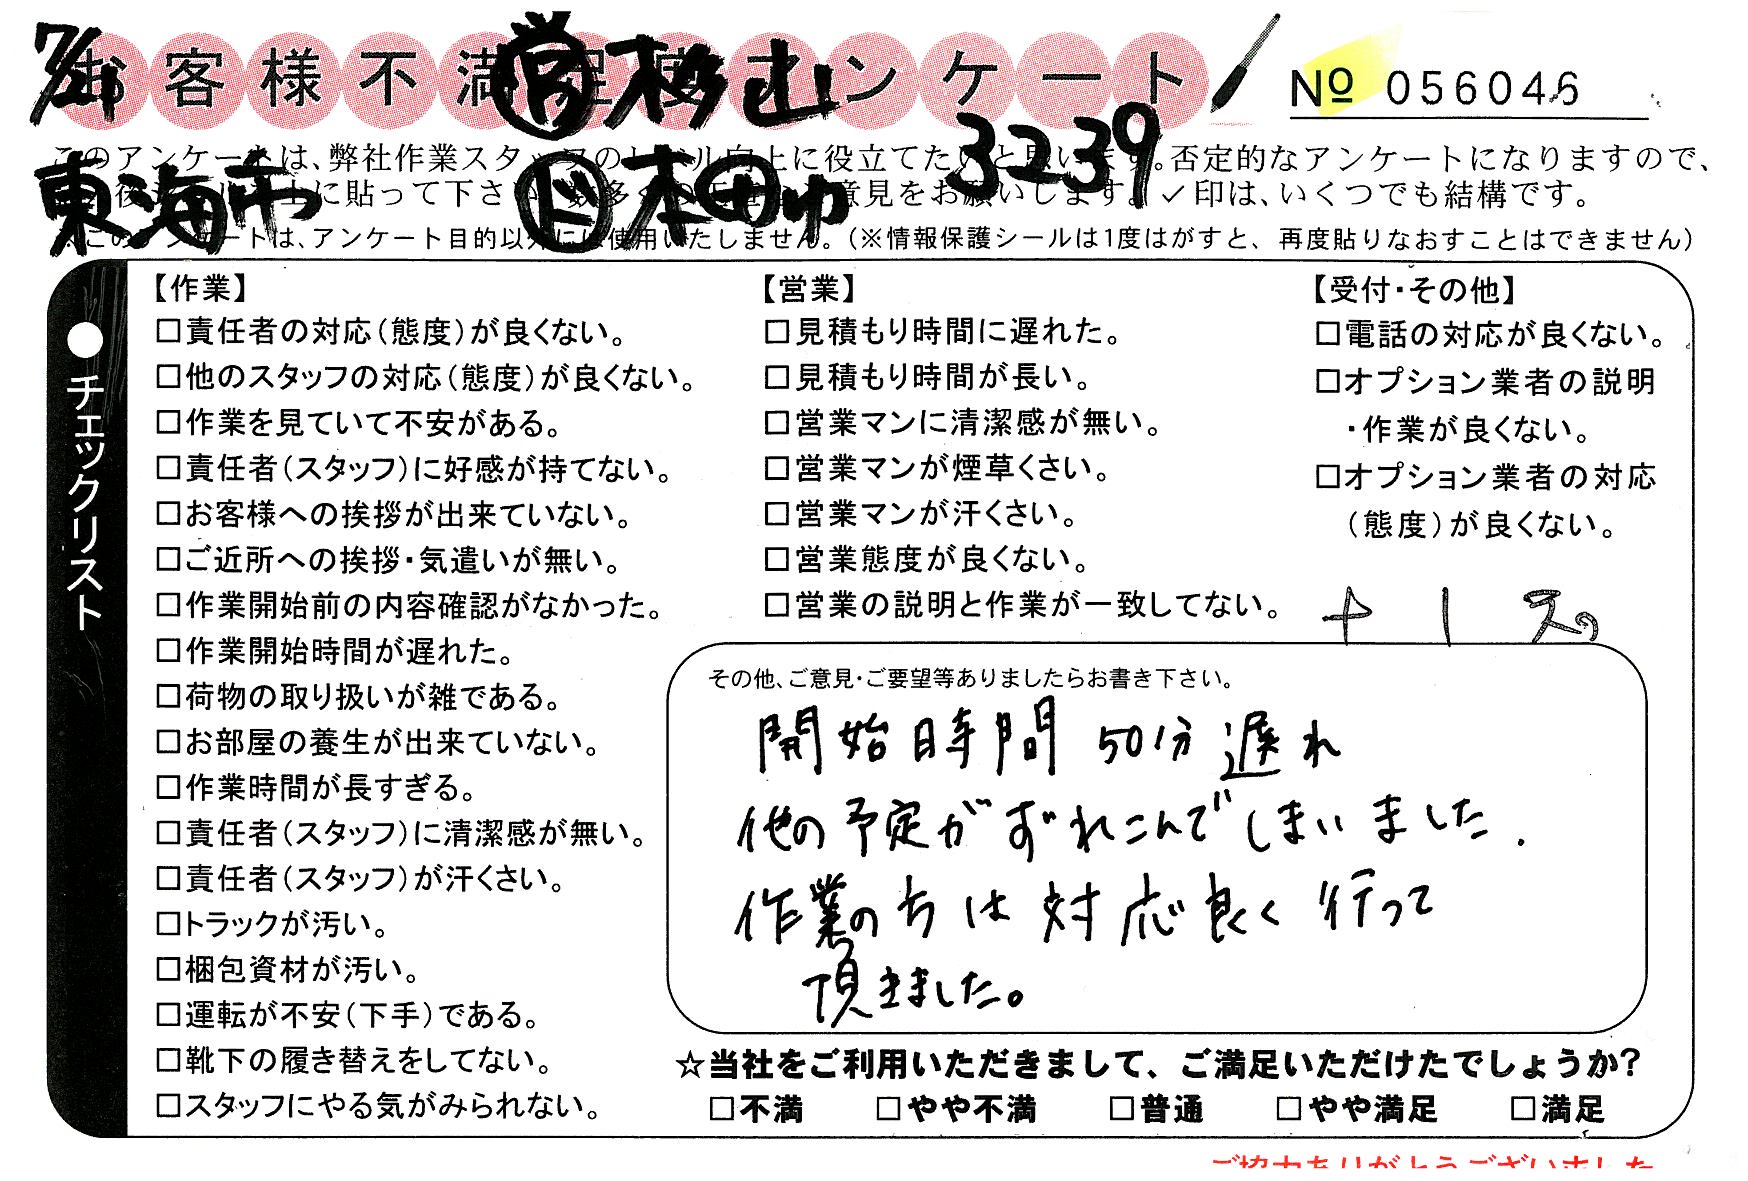 7/21 お客様不満足度アンケート
営 杉山
№ 056046
3239
このアンケートは、弊社作業スタッフのレベル向上に役立てたいと思います。否定的なアンケートになりますので、
東海市 ド 本田
に貼って下さい 数多く 意見をお願いします。✓印は、いくつでも結構です。
※このアンケートは、アンケート目的以外には使用いたしません。（※情報保護シールは1度はがすと、再度貼りなおすことはできません）
●チェックリスト
【作業】
□責任者の対応（態度）が良くない。
□他のスタッフの対応（態度）が良くない。
□作業を見ていて不安がある。
□責任者（スタッフ）に好感が持てない。
□お客様への挨拶が出来ていない。
□ご近所への挨拶・気遣いが無い。
□作業開始前の内容確認がなかった。
□作業開始時間が遅れた。
□荷物の取り扱いが雑である。
□お部屋の養生が出来ていない。
□作業時間が長すぎる。
□責任者（スタッフ）に清潔感が無い。
□責任者（スタッフ）が汗くさい。
□トラックが汚い。
□梱包資材が汚い。
□運転が不安（下手）である。
□靴下の履き替えをしてない。
□スタッフにやる気がみられない。
【営業】
□見積もり時間に遅れた。
□見積もり時間が長い。
□営業マンに清潔感が無い。
□営業マンが煙草くさい。
□営業マンが汗くさい。
□営業態度が良くない。
□営業の説明と作業が一致してない。
【受付・その他】
□電話の対応が良くない。
□オプション業者の説明
・作業が良くない。
□オプション業者の対応
（態度）が良くない。
その他、ご意見・ご要望等ありましたらお書き下さい。
開始時間 50分 遅れ
他の予定がずれこんでしまいました.
作業の方は対応良く行って
頂きました。
☆当社をご利用いただきまして、ご満足いただけたでしょうか？
□不満 □やや不満 □普通 □やや満足 □満足
ご協力ありがとうございました